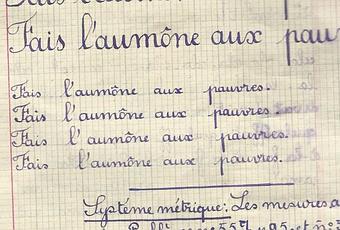 Fais l'aumône aux
Fais l'aumône aux pauvres.
Fais l'aumône aux pauvres.
Fais l'aumône aux pauvres.
Fais l'aumône aux pauvres.
Système métrique: Les mesures